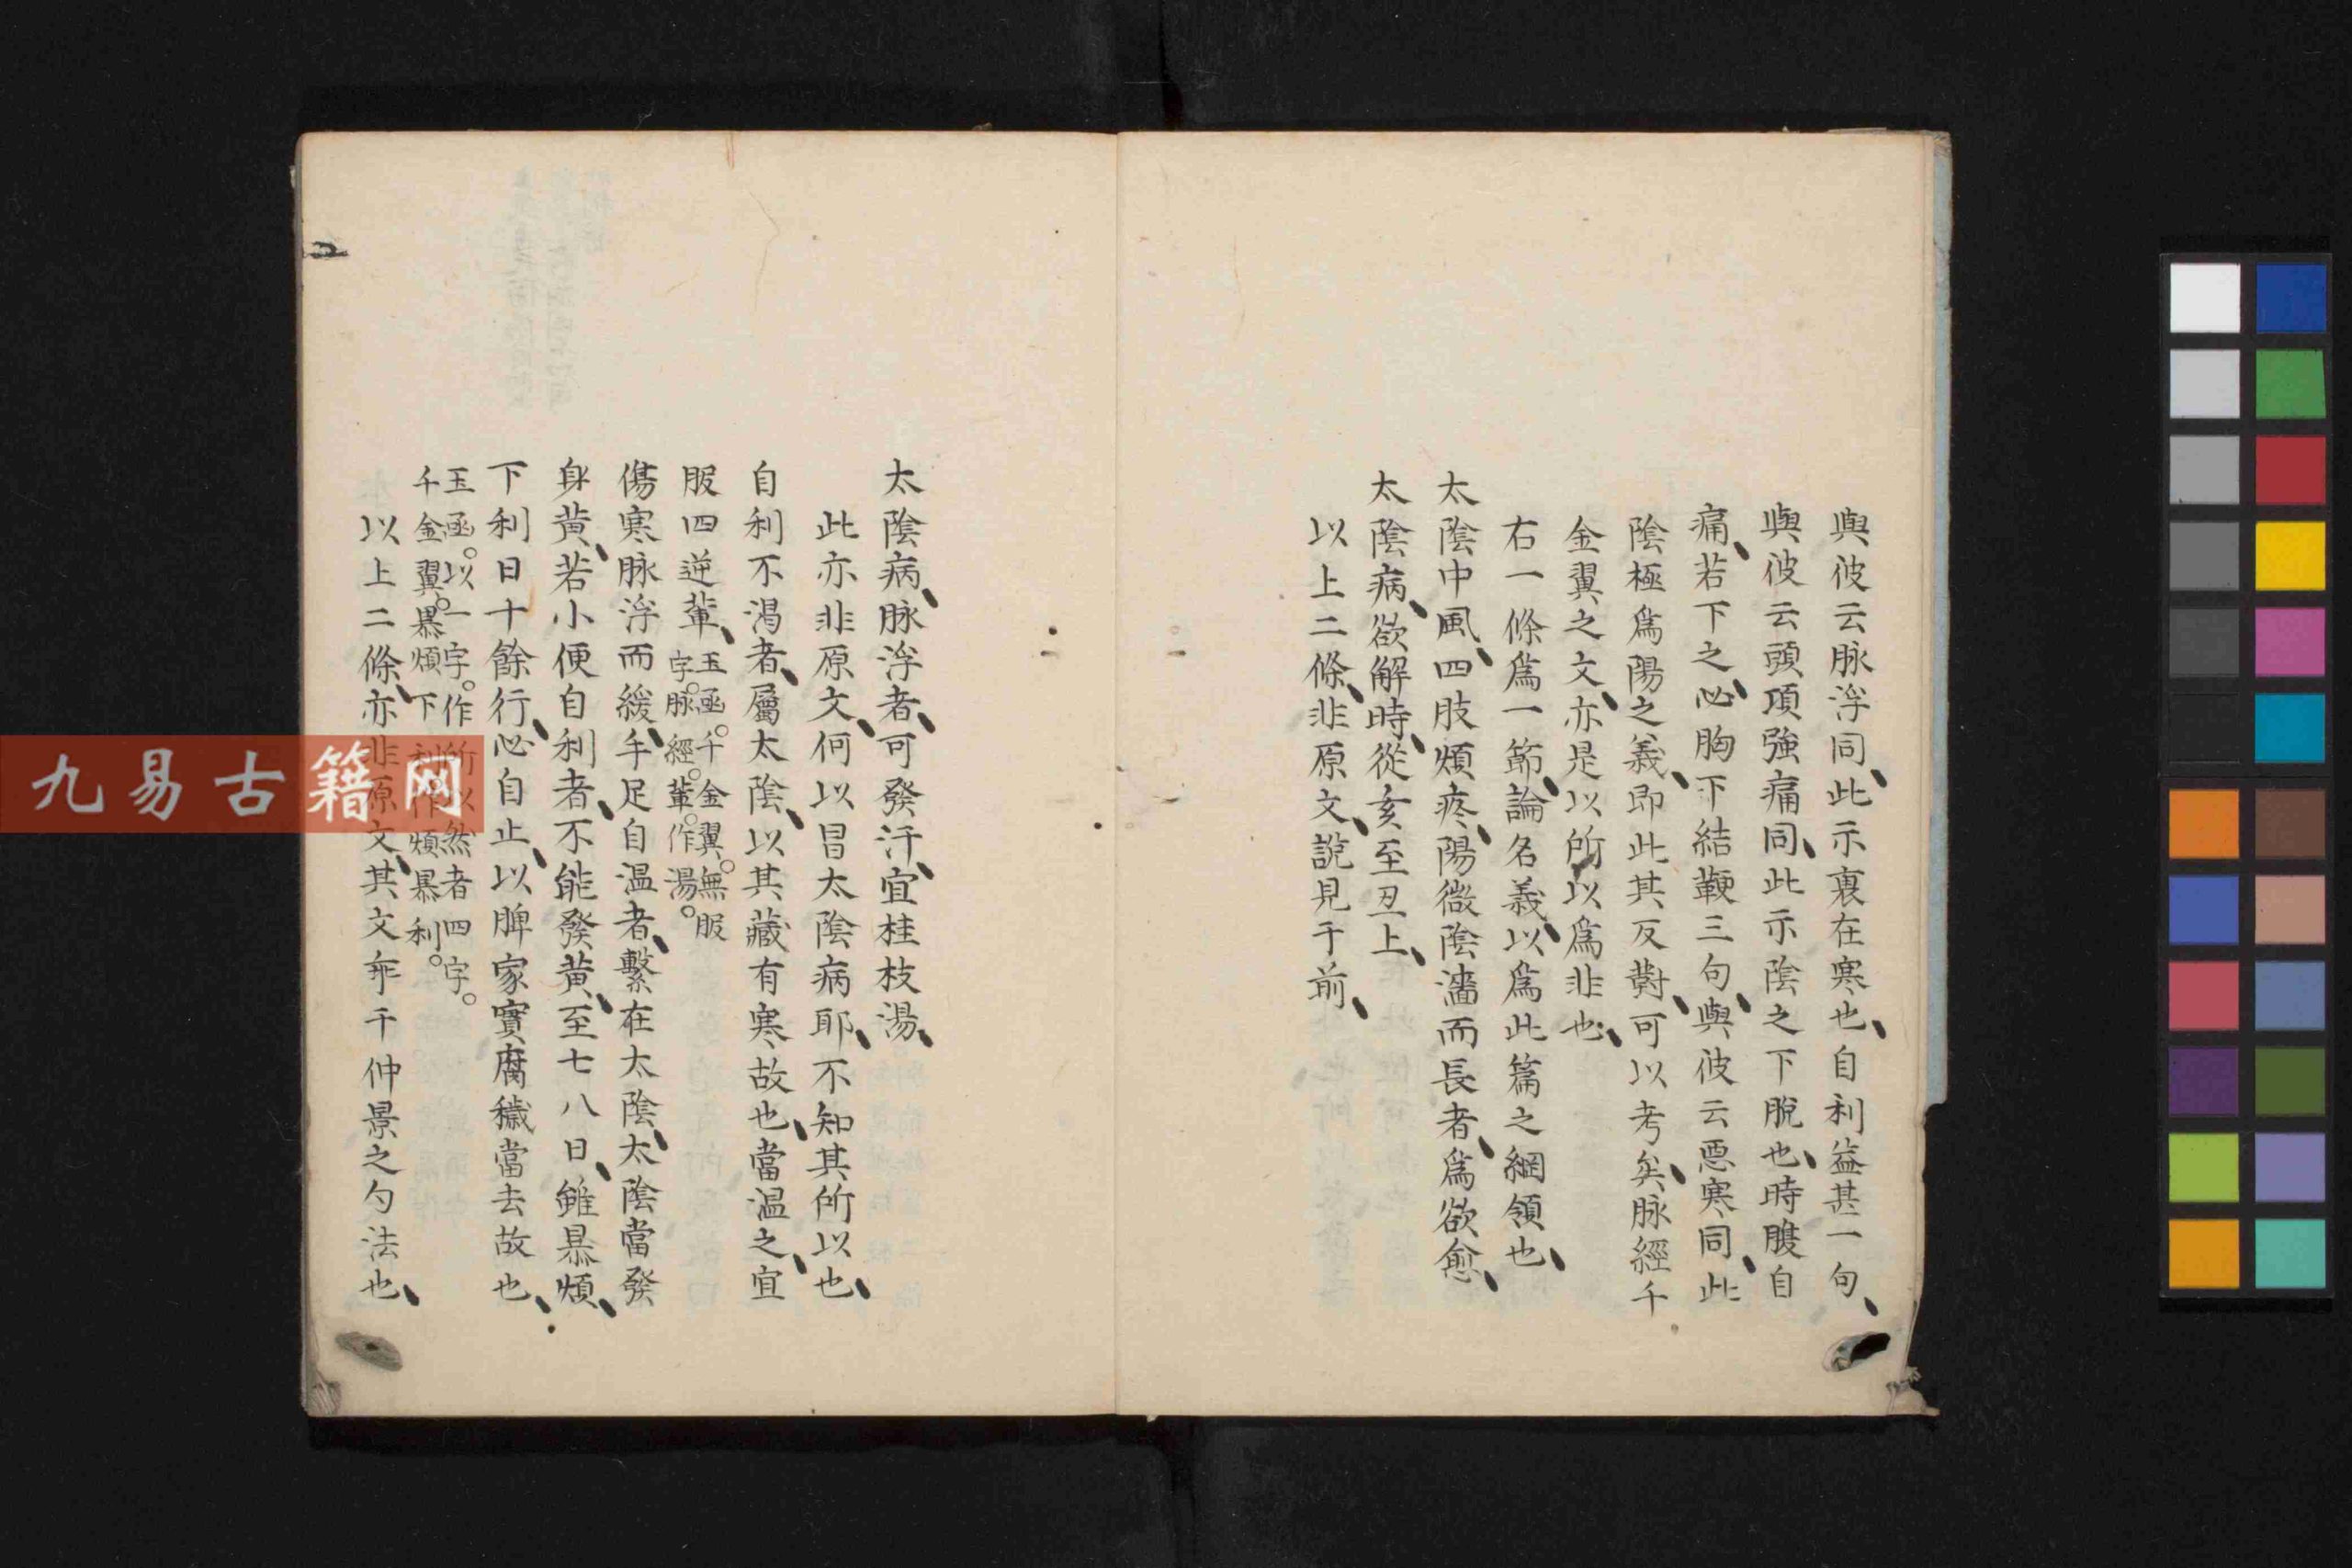 與彼云脉浮同、此示裏在寒也、自利益甚一句、
與彼云頭項強痛同、此示陰之下脫也、時腹自
痛、若下之、必胸下結鞕三句、與彼云惡寒同、此
陰極爲陽之義、即此其反對、可以考矣、脉經千
金翼之文、亦是以所以爲非也、
右一條爲一節、論名義、以爲此篇之綱領也、
太陰中風、四肢煩疼、陽微陰濇而長者、爲欲愈、
太陰病、欲解時、從亥至丑上、
以上二條、非原文、說見于前、
太陰病、脉浮者、可發汗、宜桂枝湯、
此亦非原文、何以冒太陰病耶、不知其所以也、
自利不渴者、屬太陰、以其藏有寒故也、當温之、宜
服四逆輩、玉函。千金翼。無服
字。脉經。輩。作湯。
傷寒脉浮而緩、手足自温者、繫在太陰、太陰當發
身黄、若小便自利者、不能發黄、至七八日、雖暴煩、
下利日十餘行、必自止、以脾家實腐穢當去故也、
玉函。以一字。作所以然者四字。
千金翼。暴煩下利作煩暴利。
以上二條、亦非原文、其文乖千仲景之句法也、
九易古籍网